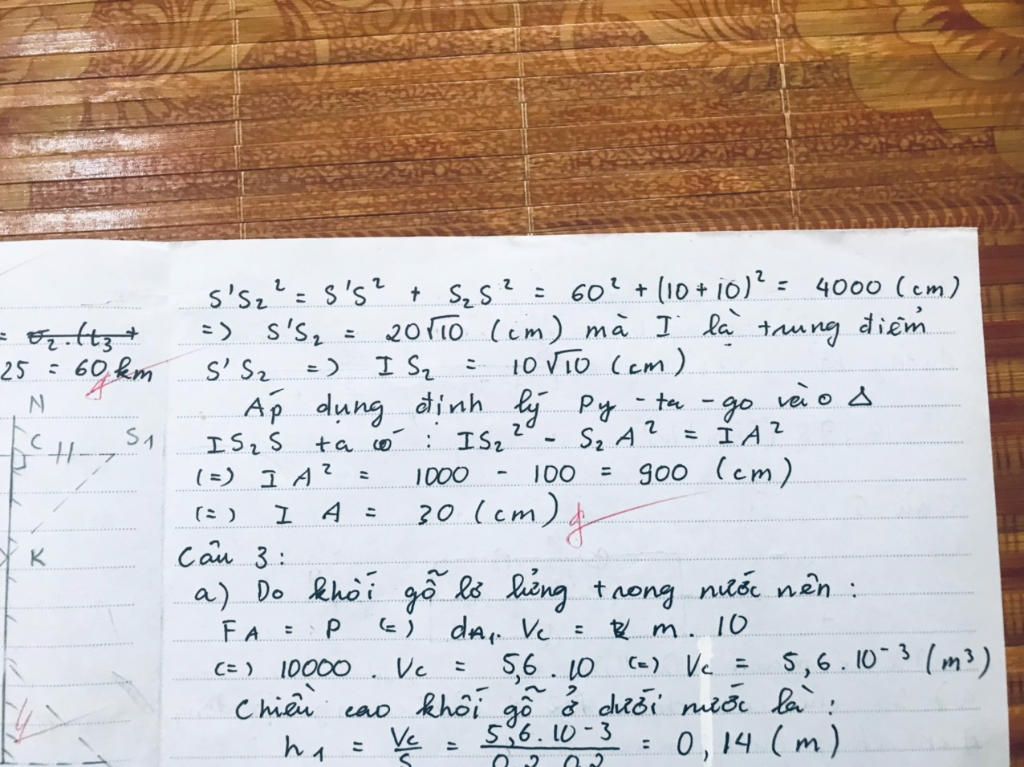 S'S₂² = S'S² + S₂S² = 60² + (10+10)² = 4000 (cm)
=) S'S₂ = 20√10 (cm) mà I là trung điểm
S'S₂ =) IS₂ = 10√10 (cm)
Áp dụng định lý Py-ta-go vào Δ
IS₂S ta có : IS₂² - S₂A² = IA²
(=) IA² = 1000 - 100 = 900 (cm)
(=) IA = 30 (cm)
Câu 3:
a) Do khối gỗ lơ lửng trong nước nên :
FA = P (=) dA₁. Vc = m . 10
(=) 10000 . Vc = 5,6 . 10 (=) Vc = 5,6 . 10⁻³ (m³)
Chiều cao khối gỗ ở dưới nước là :
h₁ = Vc/S = 5,6 . 10⁻³/0,2 . 0,2 = 0,14 (m)
= v₂.(t₃+
25 = 60 km
N
C S₁
K